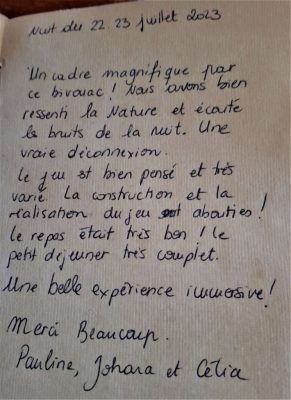 Nuit du 22.23 juillet 2023
Un cadre magnifique par
ce bivouac! Nous avons bien
ressenti la Nature et écouté
les bruits de la nuit. Une
vraie déconnexion.
Le jeu est bien pensé et très
varié. La construction et la
réalisation du jeu sont abouties!
Le repas était très bon! le
petit déjeuner très complet.
Une belle expérience immersive!
Merci Beaucoup.
Pauline, Johana et Célia